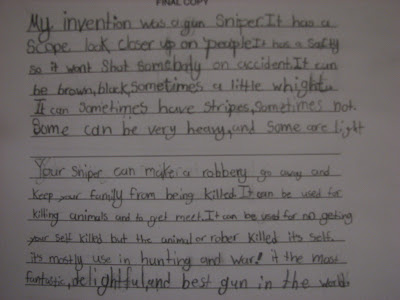 FINAL COPY
My invention was a gun Sniper. It has a
Scope look closer up on people It has a Safty
so it wont Shot somebaly on accident. It can
be brown, black, sometimes a little whight
It can sometimes have stripes, sometimes not.
Some can be very heavy, and some are light
Your sniper can make a robbery go away and
keep your family from being killed. It can be used for
killing animals and to get meet. It can be used for no geting
your self killed but the animal or rober killed its self.
its mostly use in hunting and war. it the most
fantastic, delightful, and best gun in the world.